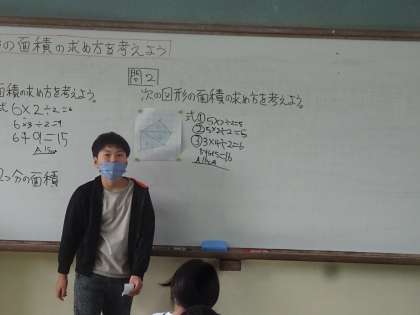 の面積の求め方を考えよう
面積の求め方を考えよう。
式 6×2÷2=6
6×3÷2=9
6+9=15
A.15㎠
2つ分の面積
問2
次の図形の面積の求め方を考えよう。
式①5×2÷2=5
②5×2÷2=5
③3×4÷2=6
5+5+6=16